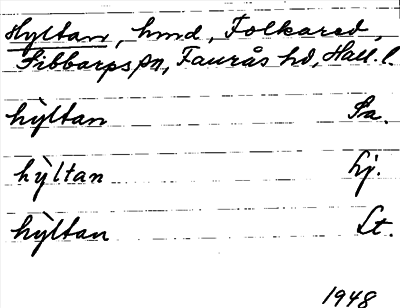 Hyltan, hmd, Folkared,
Sibbarps sn, Faurås hd, Hall. l.
hỳltan Sa.
hỳltan Lj.
hỳltan Lt.
1948